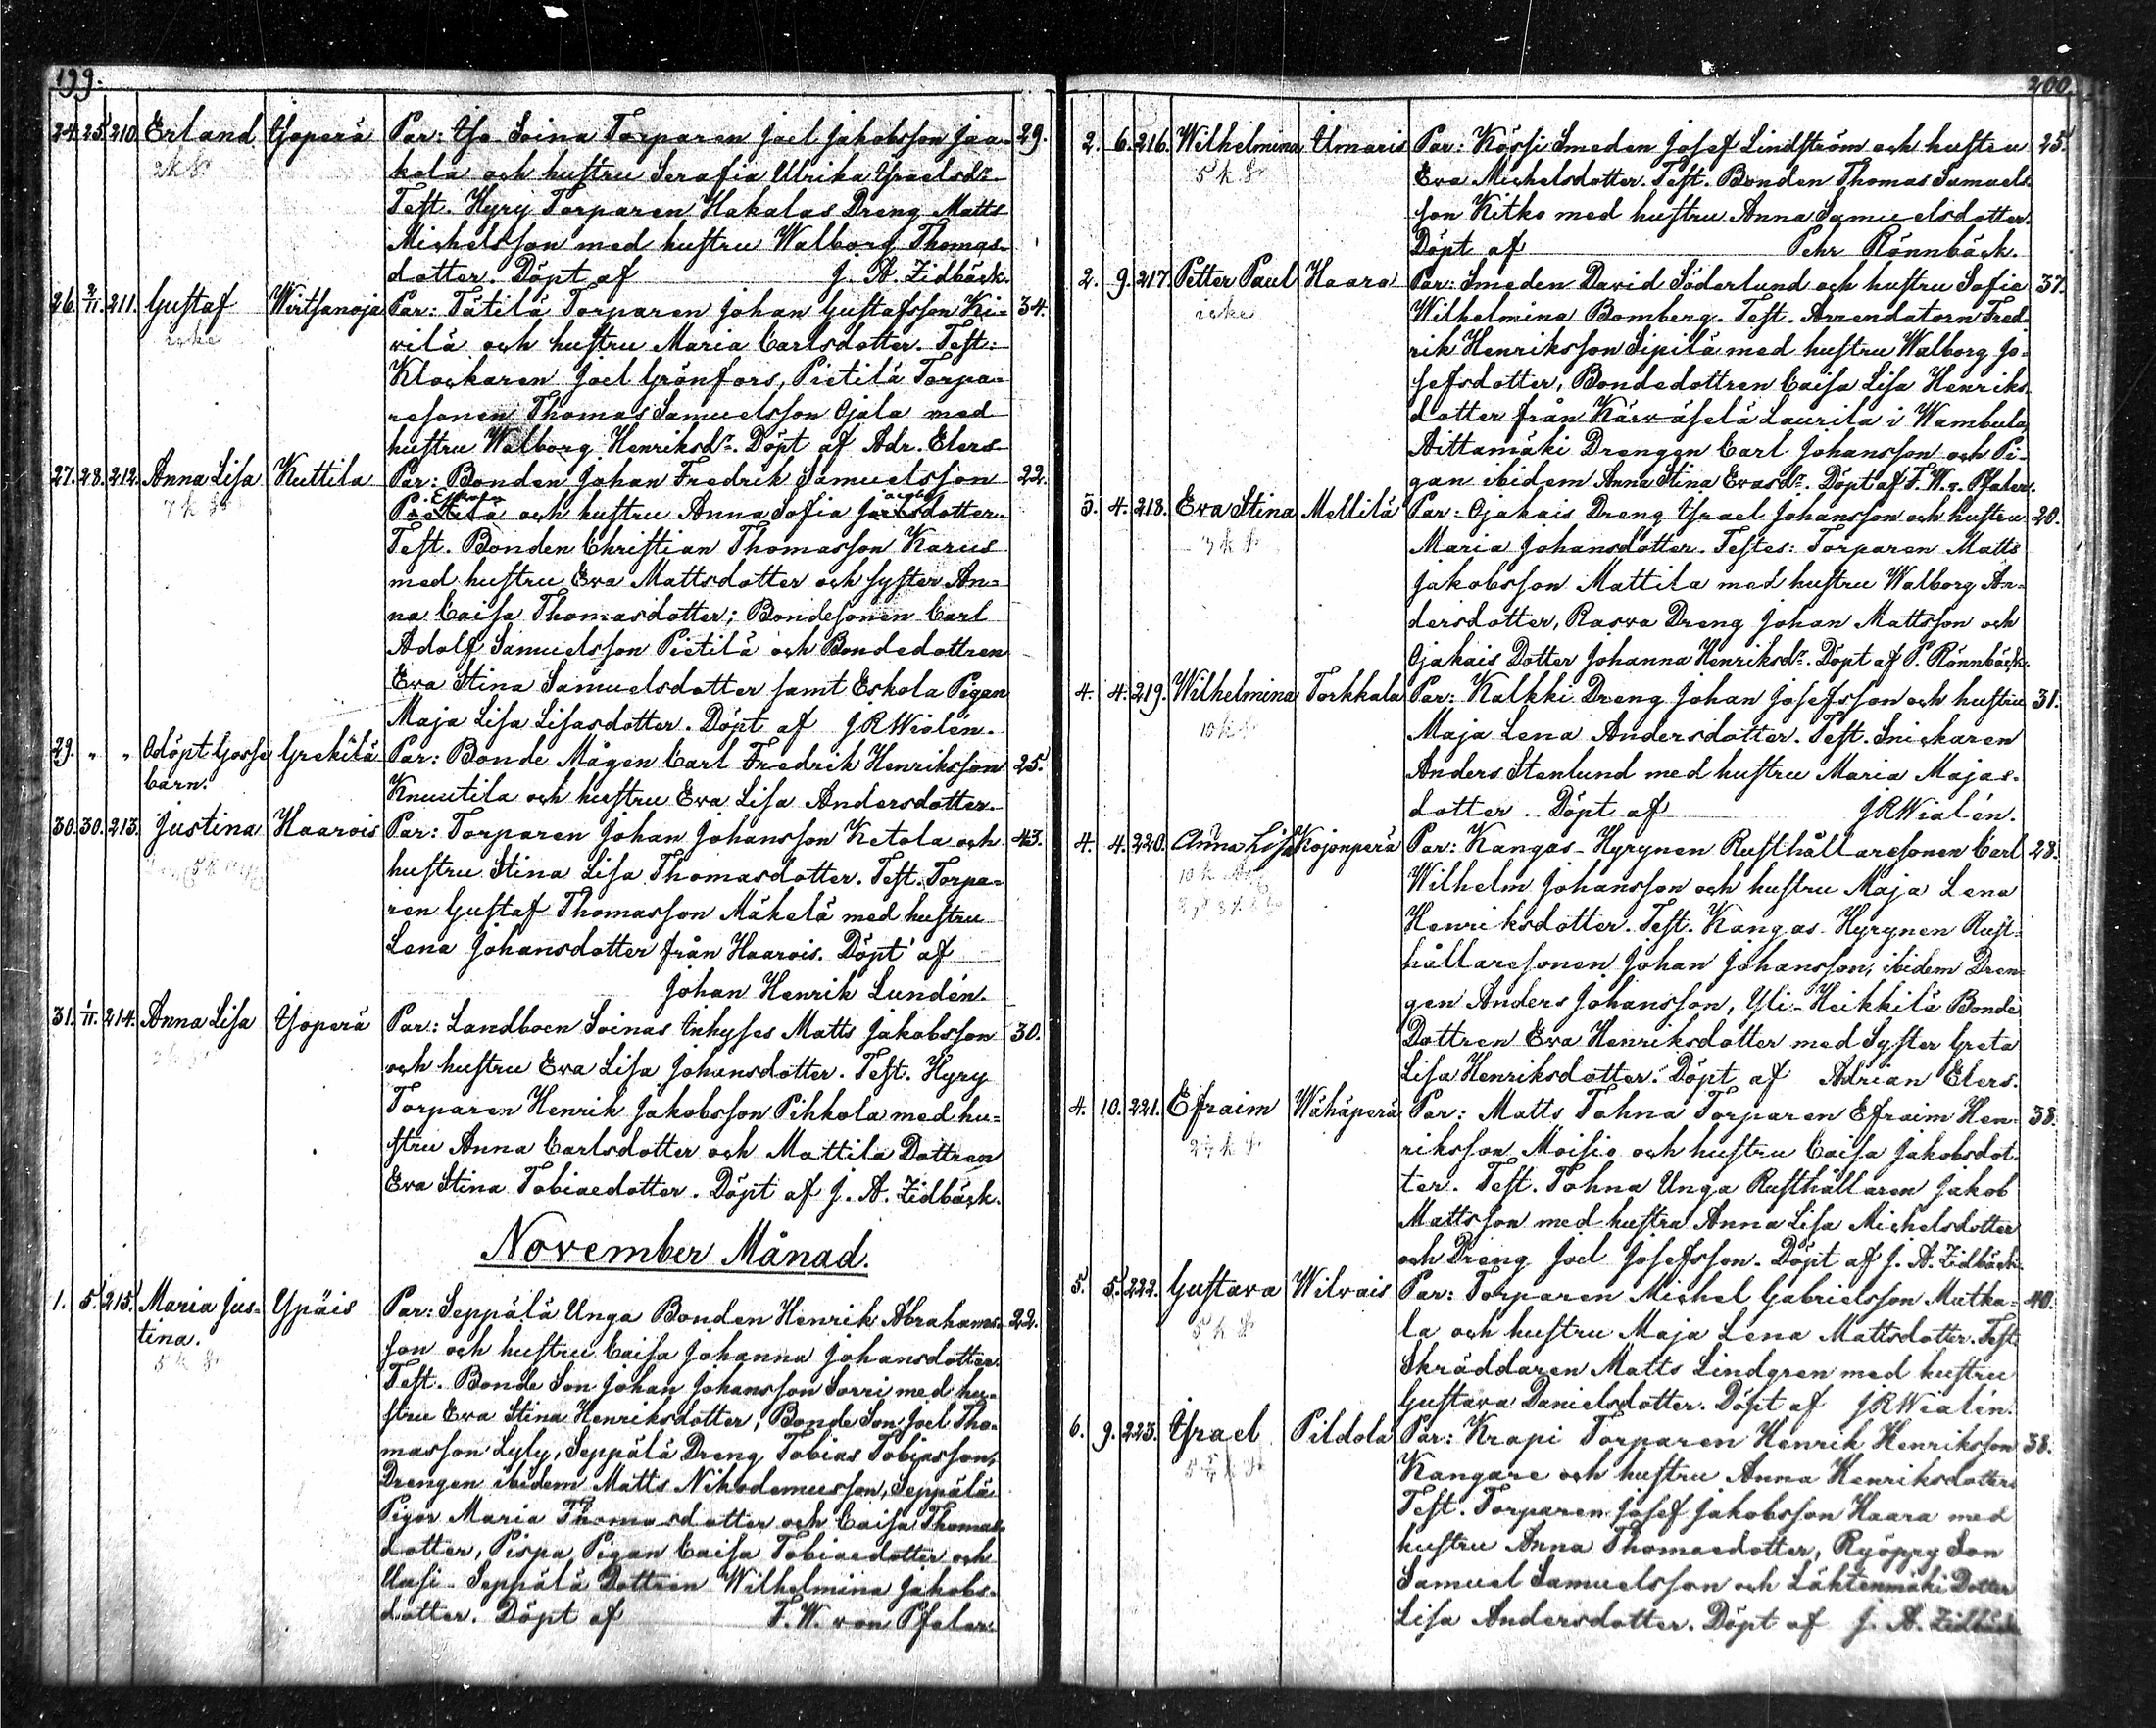 199.
24. 25. 210. Erland Yoperä Par: Yo-Soina Torparen Joel Jakobsson Jaa- 29.
2 k Sr kola och hustru Serafia Ulrika Ysraelsdr
Test. Hyry Torparen Hakalas Dreng Matts
Michelsson med hustru Walborg Thomas-
dotter. Döpt af J. A. Zidbäck.
26. 2/11. 211. Gustaf Wirtsanoja Par: Tätilä Torparen Johan Gustafsson Ki- 34.
icke vilä och hustru Maria Carlsdotter. Test:
Klockaren Joel Grönfors, Pietilä Torpa-
resonen Thomas Samuelsson Ojala med
hustru Walborg Henriksdr. Döpt af Adr. Elers
27. 28. 212. Anna Lisa Kuttila Par: Bonden Johan Fredrik Samuelsson 22.
7 k Sr Pietilä och hustru Anna Sofia dotter.
Test. Bonden Christian Thomasson Karus
med hustru Eva Mattsdotter och syster An-
na Caisa Thomasdotter; Bondesonen Carl
Adolf Samuelsson Pietilä och Bondedottren
Eva Stina Samuelsdotter samt Eskola Pigan
Maja Lisa Lisasdotter. Döpt af J R Wialén.
29. " " Odöpt Gosse Grekilä Par: Bonde Mågen Carl Fredrik Henriksson 25.
barn. Knuutila och hustru Eva Lisa Andersdotter.
30. 30. 213. Justina Haarois Par: Torparen Johan Johansson Ketola och 43.
hustru Stina Lisa Thomasdotter. Test. Torpa-
ren Gustaf Thomasson Mäkelä med hustru
Lena Johansdotter från Haarois. Döpt af
Johan Henrik Lundén.
31. 1/11. 214. Anna Lisa Yoperä Par: Landboen Soinas Inhyses Matts Jakobsson 30.
och hustru Eva Lisa Johansdotter. Test. Hyry
Torparen Henrik Jakobsson Pihkola med hu-
stru Anna Carlsdotter och Mattila Dottren
Eva Stina Tobiaedotter. Döpt af J. A. Zidbäck.
November Månad.
1. 5. 215. Maria Jus- Ypäis Par: Seppälä Unga Bonden Henrik Abrahams- 22.
tina. son och hustru Caisa Johanna Johansdotter.
5 k Sr Test. Bonde Son Johan Johansson Sorri med hu-
stru Eva Stina Henriksdotter; Bonde Son Joel Tho-
masson Lyly, Seppälä Dreng Tobias Tobiasson,
Drengen ibidem Matts Nikodemusson, Seppälä
Pigor Maria Thomasdotter och Caisa Thomas-
dotter, Pispa Pigan Caisa Tobiaedotter och
Uusi-Seppälä Dottren Wilhelmina Jakobs-
dotter. Döpt af F. W. von Pfaler.
200.
2. 6. 216. Wilhelmina Utmaris Par: Körsi Smeden Josef Lindström och hustru 25.
5 k. Sr Eva Michelsdotter. Test. Bonden Thomas Samuels-
son Kitko med hustru Anna Samuelsdotter.
Döpt af Pehr Rönnbäck.
2. 9. 217. Petter Paul Haara Par: Smeden David Söderlund och hustru Sofia 37.
icke Wilhelmina Bomberg. Test. Arrendatorn Fred-
rik Henriksson Sipilä med hustru Walborg Jo-
sefsdotter, Bondedottren Caisa Lisa Henriks-
dotter från Kärväselä Laurila i Wambula,
Aittamäki Drengen Carl Johansson och Pi-
gan ibidem Anna Stina Evasdr. Döpt af F. W. v. Pfaler.
3. 4. 218. Eva Stina Mellilä Par: Ojakais Dreng Ysrael Johansson och hustru 20.
Maria Johansdotter. Testes: Torparen Matts
Jakobsson Mattila med hustru Walborg An-
dersdotter, Rasva Dreng Johan Mattsson och
Ojakais Dotter Johanna Henriksdr. Döpt af P. Rönnbäck.
4. 4. 219. Wilhelmina Torkkala Par: Kalkki Dreng Johan Josefsson och hustru 31.
10 k Sr Maja Lena Andersdotter. Test. Snickaren
Anders Stenlund med hustru Maria Majas-
dotter. Döpt af J R Wialén.
4. 4. 220. Anna Lisa Kojonperä Par: Kangas-Hyrynen Rusthållaresonen Carl 28.
10 k Wilhelm Johansson och hustru Maja Lena
Henriksdotter. Test. Kangas-Hyrynen Rust-
hållaresonen Johan Johansson, ibidem Dren-
gen Anders Johansson, Yli-Heikkilä Bonde
Dottren Eva Henriksdotter med Syster Greta
Lisa Henriksdotter. Döpt af Adrian Elers.
4. 10. 221. Efraim Wähäperä Par: Matts Tohna Torparen Efraim Hen- 38.
riksson Moisio och hustru Caisa Jakobsdot-
ter. Test. Tohna Unga Rusthållaren Jakob
Mattsson med hustru Anna Lisa Michelsdotter
och Dreng Joel Josefsson. Döpt af J. A. Zidbäck.
5. 5. 222. Gustava Wilvais Par: Torparen Michel Gabrielsson Matka- 40.
5 k Sr la och hustru Maja Lena Mattsdotter. Test.
Skräddaren Matts Lindgren med hustru
Gustava Danielsdotter. Döpt af J R Wialén.
6. 9. 223. Ysrael Pildola Par: Krapi Torparen Henrik Henriksson 38.
Kangare och hustru Anna Henriksdotter
Test. Torparen Josef Jakobsson Haara med
hustru Anna Thomasdotter, Ryöppy Son
Samuel Samuelsson och Lähtenmäki Dotter
Lisa Andersdotter. Döpt af J. A. Zidbäck